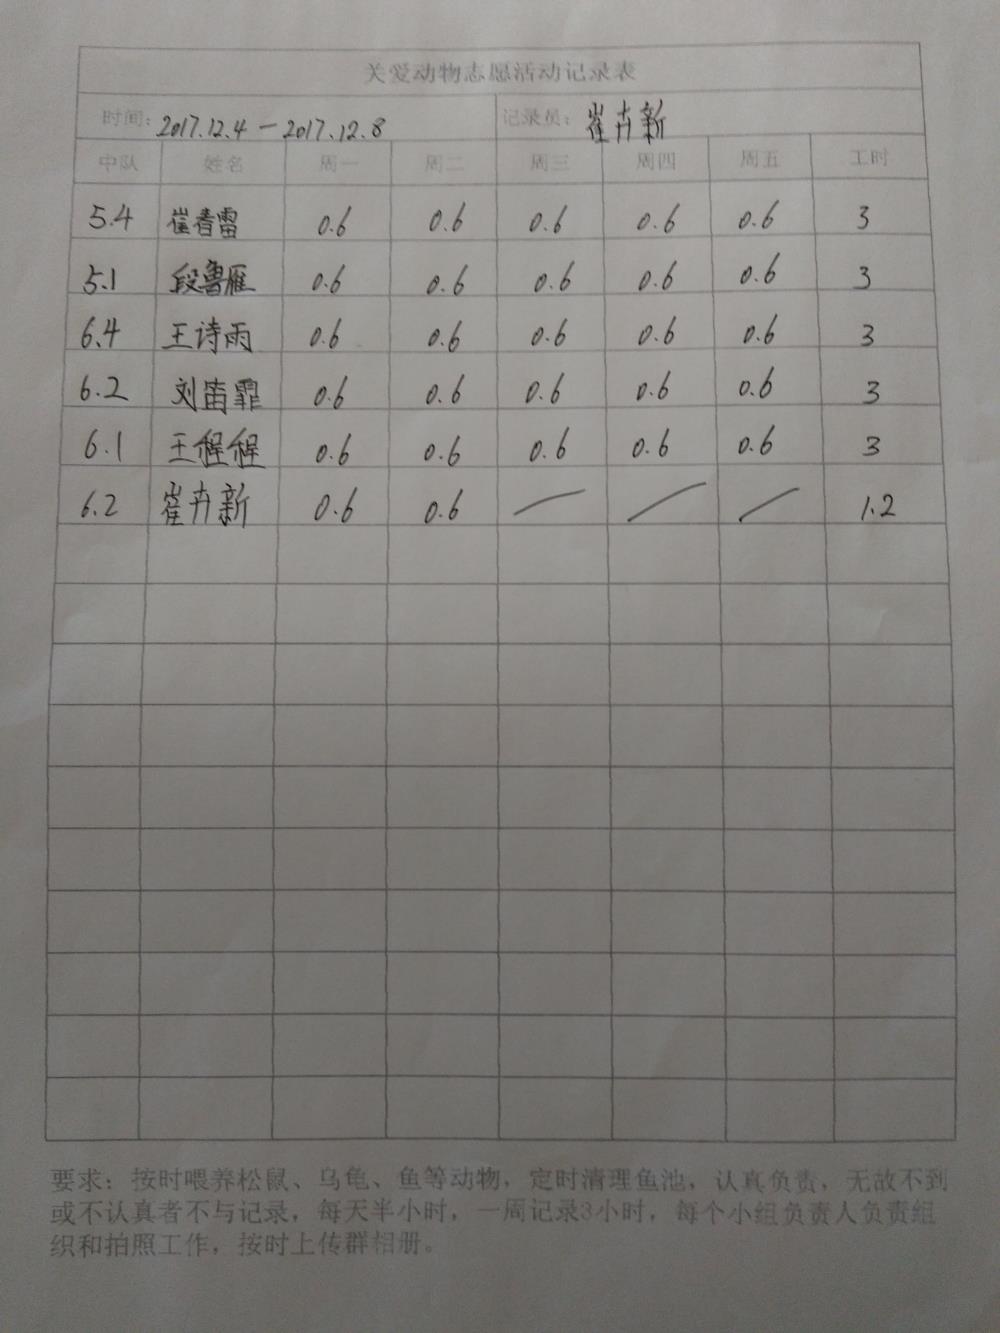 关爱动物志愿活动记录表
时间: 2017.12.4 — 2017.12.8 记录员: 崔卉新
中队 姓名 周一 周二 周三 周四 周五 工时
5.4 崔春雷 0.6 0.6 0.6 0.6 0.6 3
5.1 段鲁雁 0.6 0.6 0.6 0.6 0.6 3
6.4 王诗雨 0.6 0.6 0.6 0.6 0.6 3
6.2 刘笛霏 0.6 0.6 0.6 0.6 0.6 3
6.1 王程程 0.6 0.6 0.6 0.6 0.6 3
6.2 崔卉新 0.6 0.6 / / / 1.2
要求：按时喂养松鼠、乌龟、鱼等动物，定时清理鱼池，认真负责，无故不到
或不认真者不与记录，每天半小时，一周记录3小时，每个小组负责人负责组
织和拍照工作，按时上传群相册。